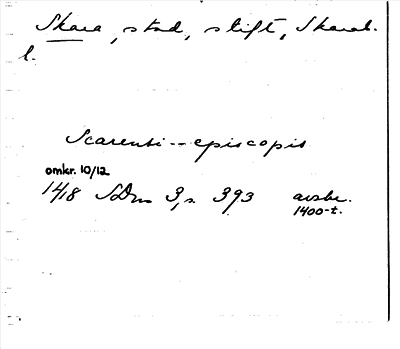 Skara, stad, stift, Skarab.
l.
Scarensi -- episcopis
omkr. 10/12
1418 SDns 3, s. 393 avskr.
1400-t.